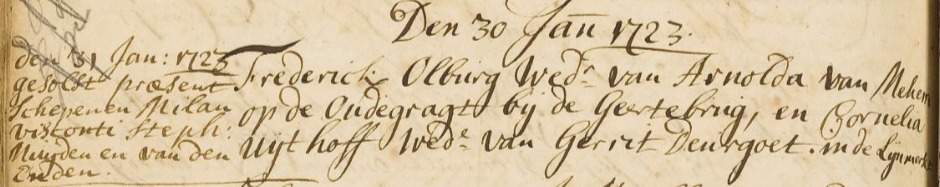 Den 30 Jan̄ 1723.
den 31 Jan: 1723
gesolst præsent
Schepenen Milan
visconti Steph:
Muyden en van den
Eeden.
Frederick Olburg Wedr van Arnolda van Mehem
op de Oudegragt bij de Geertebrug, en Cornelia
Uijthoff Wede van Gerrit Deurgoet. in de Lijnmerkt